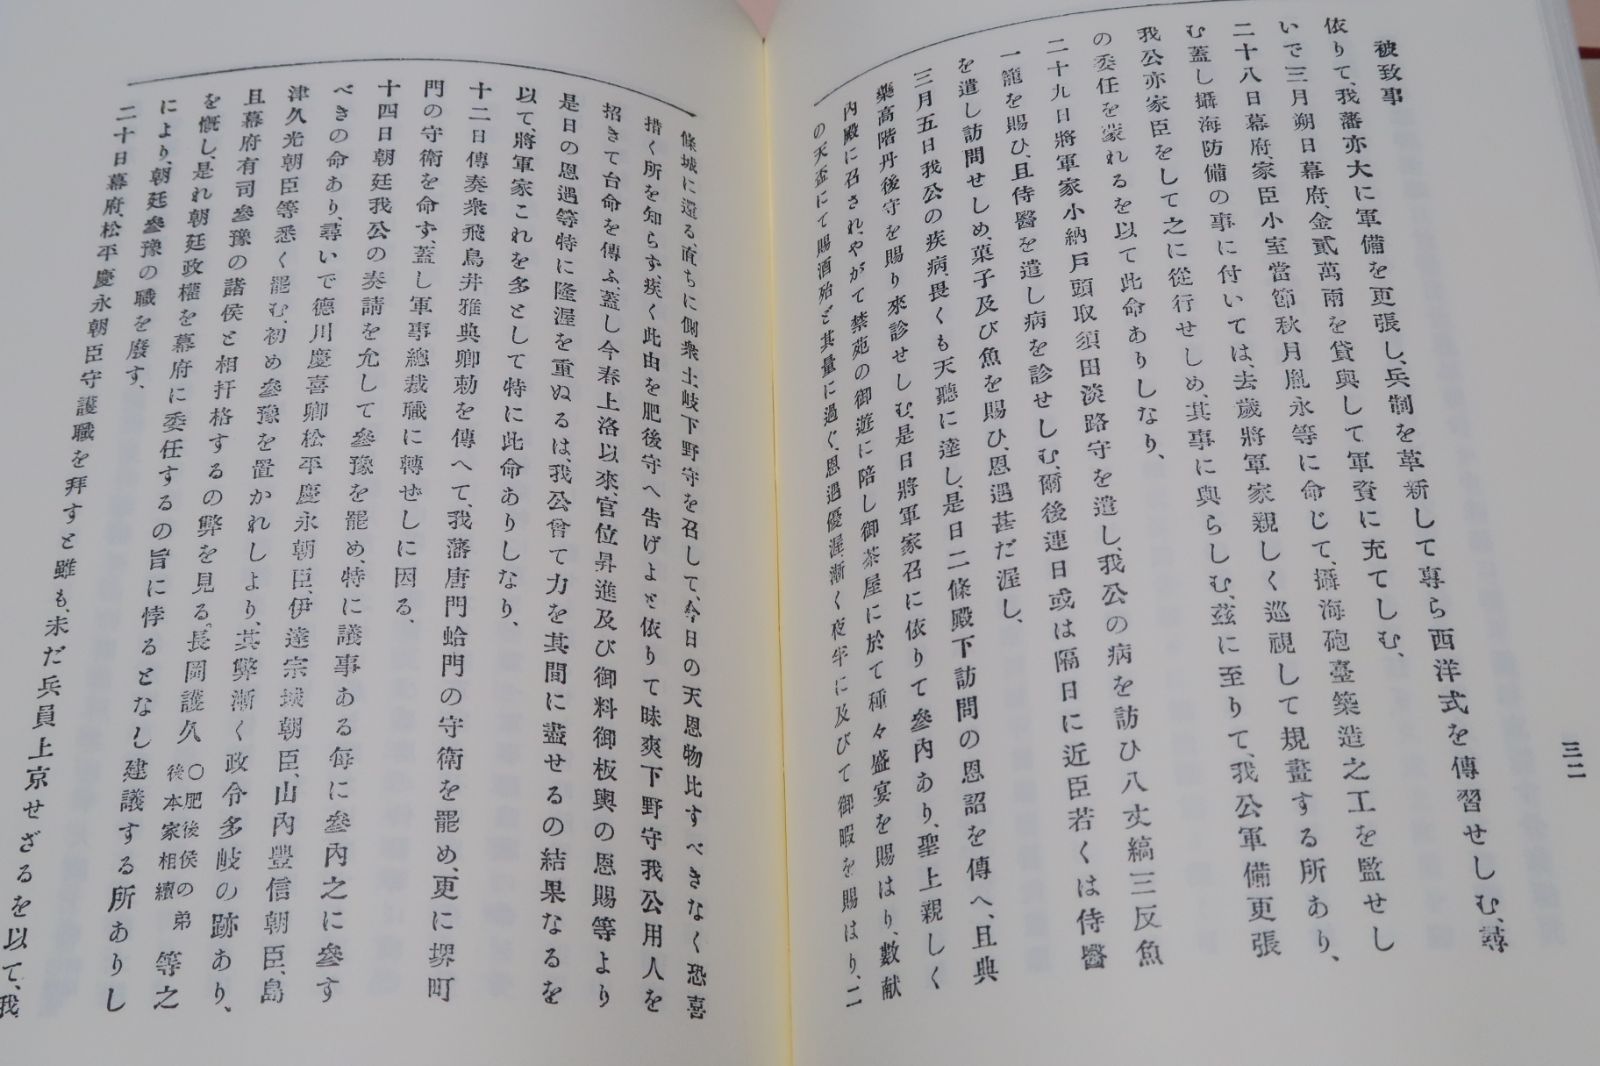 三二
被致事
依りて、我藩亦大に軍備を更張し、兵制を革新して專ら西洋式を傳習せしむ、尋
いで三月朔日幕府、金貳萬兩を貸與して軍資に充てしむ、
二十八日幕府、家臣小室當節秋月胤永等に命じて、攝海砲臺築造之工を監せし
む蓋し攝海防備の事に付いては、去歲將軍家親しく巡視して規畫する所あり、
我公亦家臣をして之に從行せしめ、其事に與らしむ、茲に至りて、我公軍備更張
の委任を蒙れるを以て此命ありしなり、
二十九日將軍家小納戸頭取須田淡路守を遣し、我公の病を訪ひ八丈縞三反魚
一籠を賜ひ、且侍醫を遣し病を診せしむ、爾後連日或は隔日に近臣若くは侍醫
を遣し訪問せしめ、菓子及び魚を賜ひ、恩遇甚だ渥し、
三月五日我公の疾病、畏くも天聽に達し、是日二條殿下訪問の恩詔を傳へ、且典
藥高階丹後守を賜り來診せしむ、是日將軍家召に依りて參內あり、聖上親しく
內殿に召されやがて禁苑の御遊に陪し御茶屋に於て種々盛宴を賜はり、數献
の天盃にて賜酒殆ど其量に過ぐ、恩遇優渥漸く夜半に及びて御暇を賜はり、二
條城に還る、直ちに側衆土岐下野守を召して、今日の天恩物比すべきなく恐喜
措く所を知らず、疾く此由を肥後守へ告げよと依りて昧爽下野守我公用人を
招きて台命を傳ふ、蓋し今春上洛以來、官位昇進及び御料御板輿の恩賜等より
是日の恩遇等特に隆渥を重ぬるは、我公曾て力を其間に盡せるの結果なるを
以て、將軍家これを多として特に此命ありしなり、
十二日傳奏衆飛鳥井雅典卿勅を傳へて、我藩唐門蛤門の守衞を罷め、更に堺町
門の守衞を命ず、蓋し軍事總裁職に轉ぜしに因る、
十四日朝廷我公の奏請を允して參豫を罷め、特に議事ある每に參內之に參す
べきの命あり、尋いで德川慶喜卿松平慶永朝臣、伊達宗城朝臣、山內豐信朝臣、島
津久光朝臣等悉く罷む、初め參豫を置かれしより、其弊漸く政令多岐の跡あり、
且幕府有司參豫の諸侯と相扞格するの弊を見る。長岡護久〇肥後侯の弟後本家相續等之
を慨し、是れ朝廷政權を幕府に委任するの旨に悖るとなし建議する所ありし
により、朝廷參豫の職を廢す、
二十日幕府、松平慶永朝臣守護職を拜すと雖も、未だ兵員上京せざるを以て、我